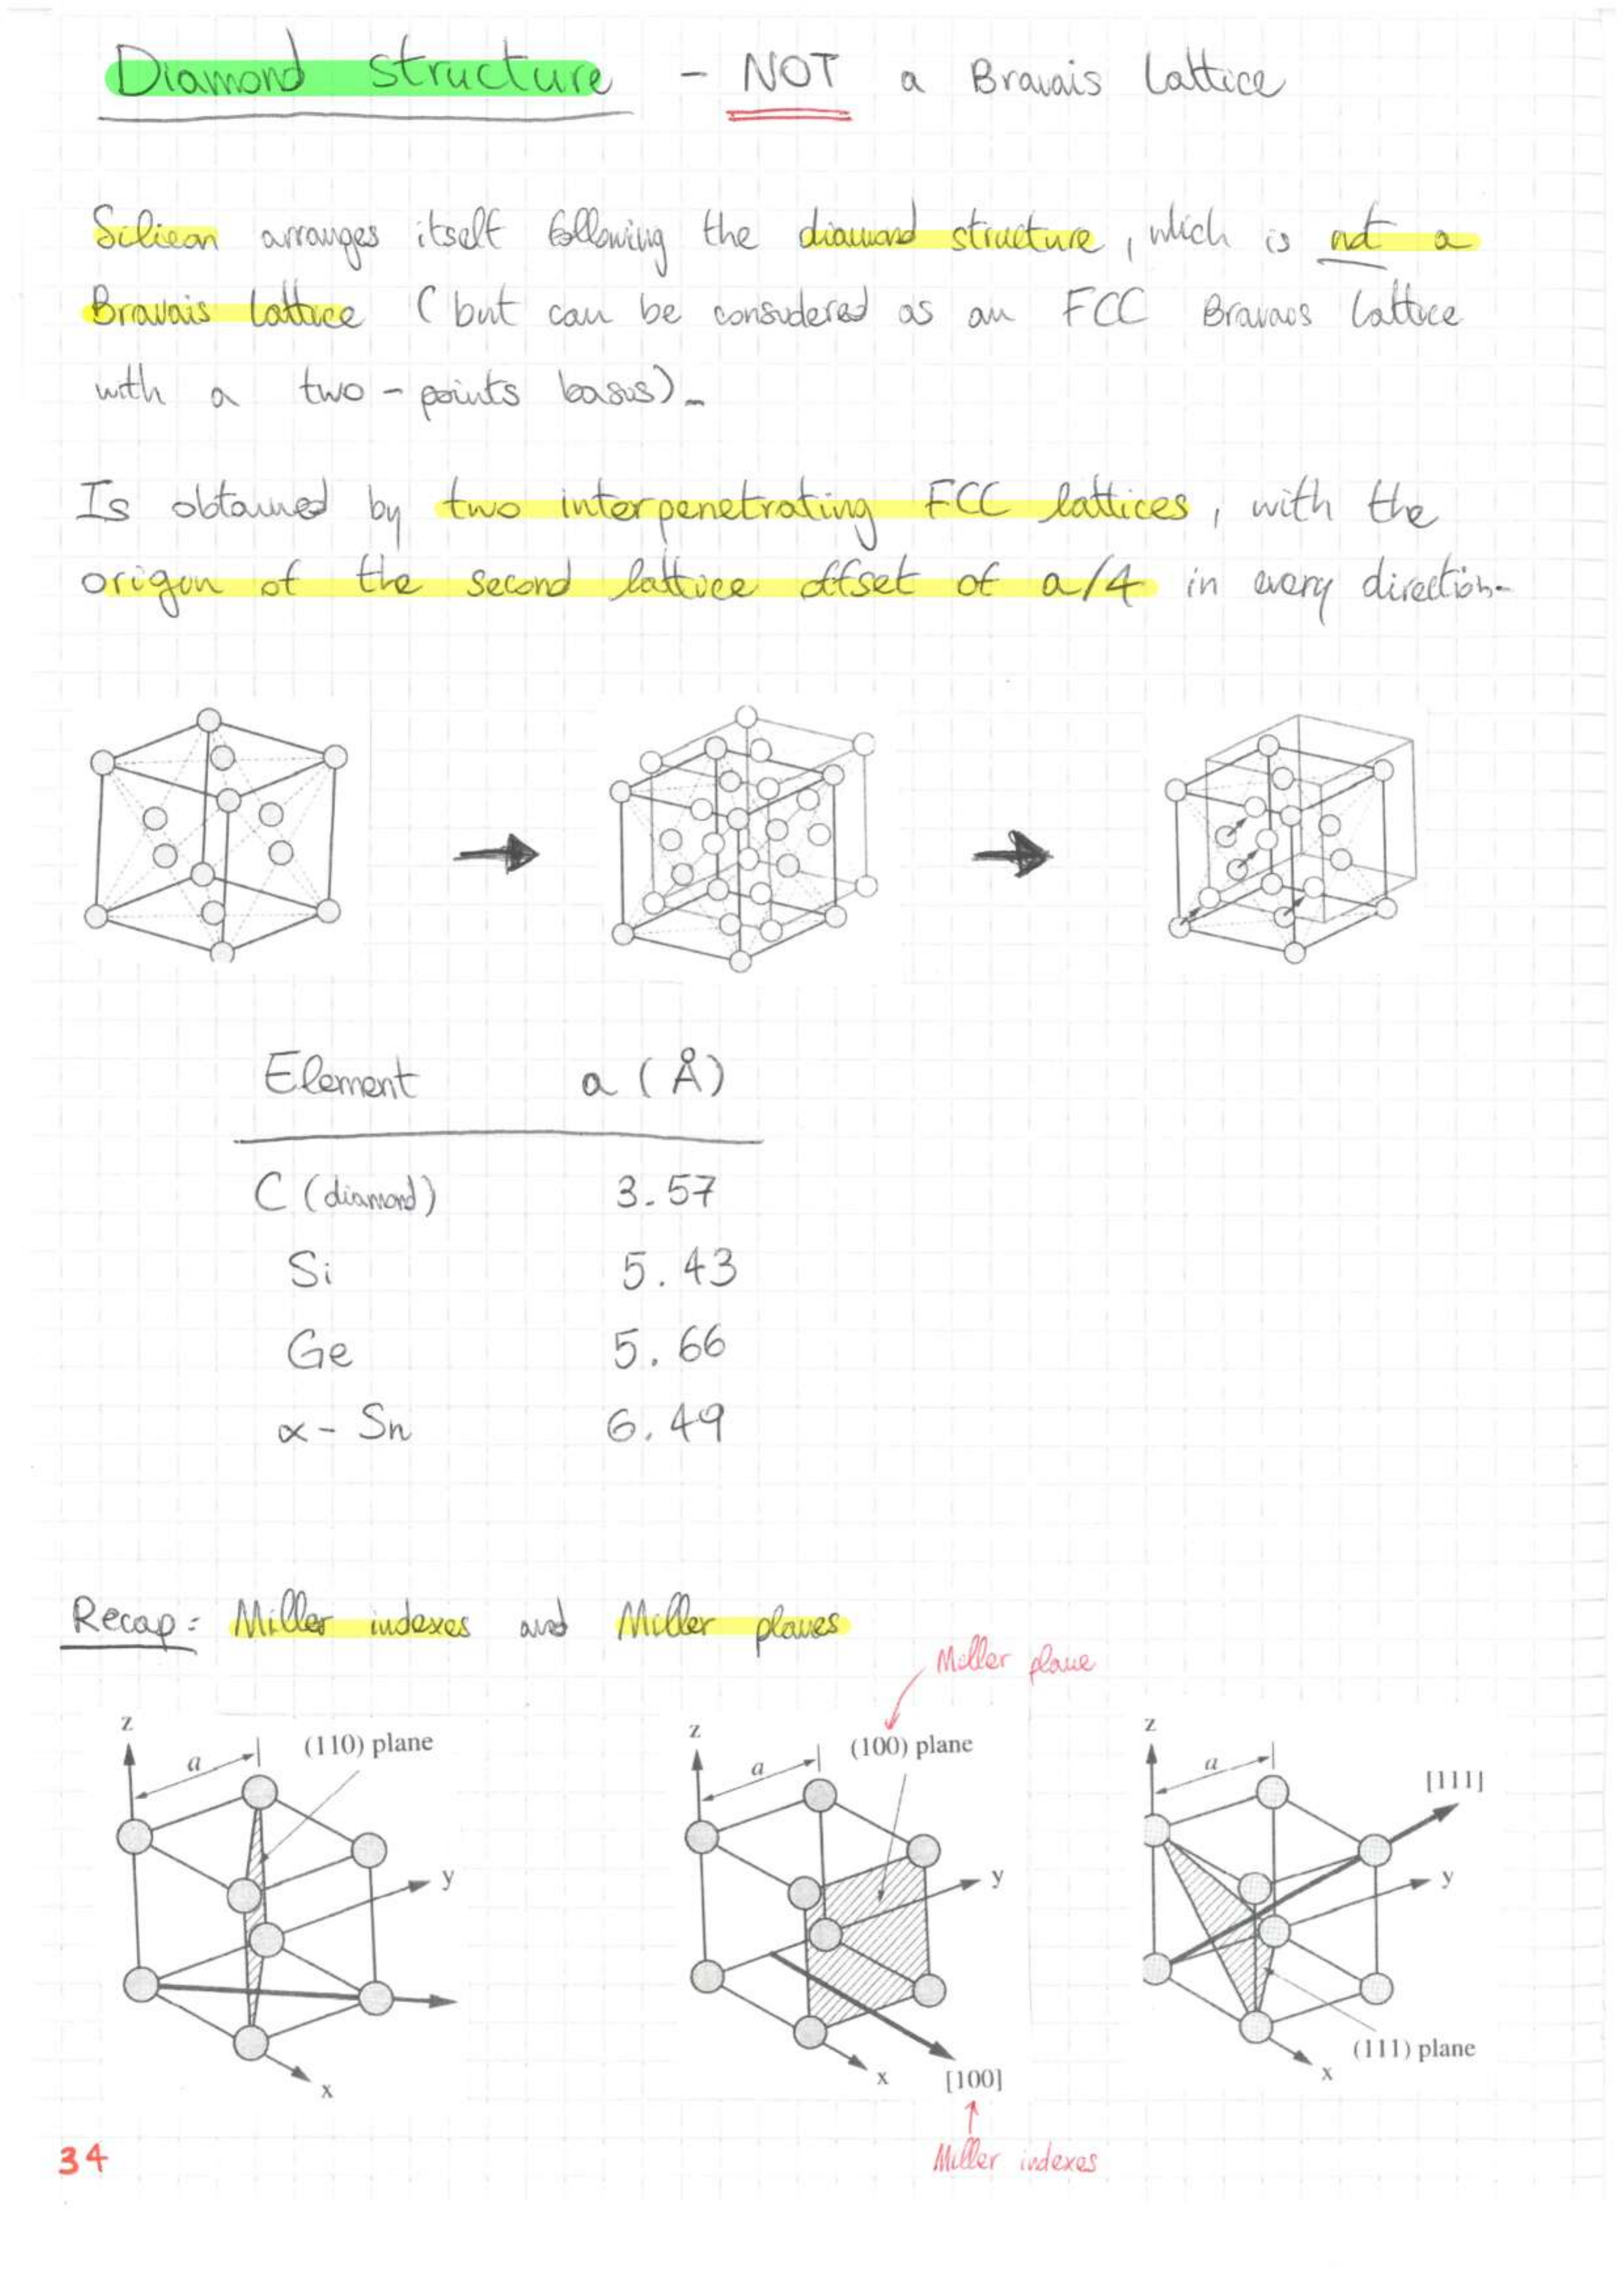 Diamond structure - NOT a Bravais lattice
Silicon arranges itself following the diamond structure, which is not a
Bravais lattice (but can be considered as an FCC Bravais lattice
with a two-points basis).
Is obtained by two interpenetrating FCC lattices, with the
origin of the second lattice offset of a/4 in every direction.
Element a (Å)
C (diamond) 3.57
Si 5.43
Ge 5.66
α-Sn 6.49
Recap: Miller indexes and Miller planes
Miller plane
z a (110) plane
y
x
z a (100) plane
y
x [100]
Miller indexes
z a [111]
y
(111) plane
x
34